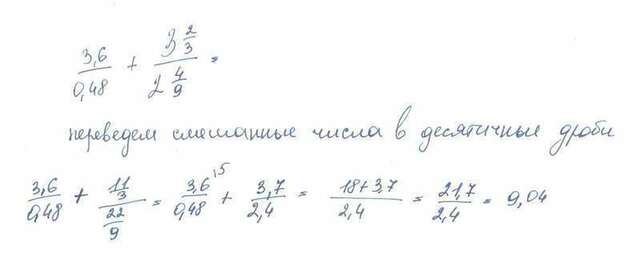 3,6/0,48 + 3 2/3 / 2 4/9 =
переведем смешанные числа в десятичные дроби
3,6/0,48 + 11/3 / 22/9 = 3,6/0,48 ,5 + 3,7/2,4 = 18+3,7/2,4 = 21,7/2,4 = 9,04